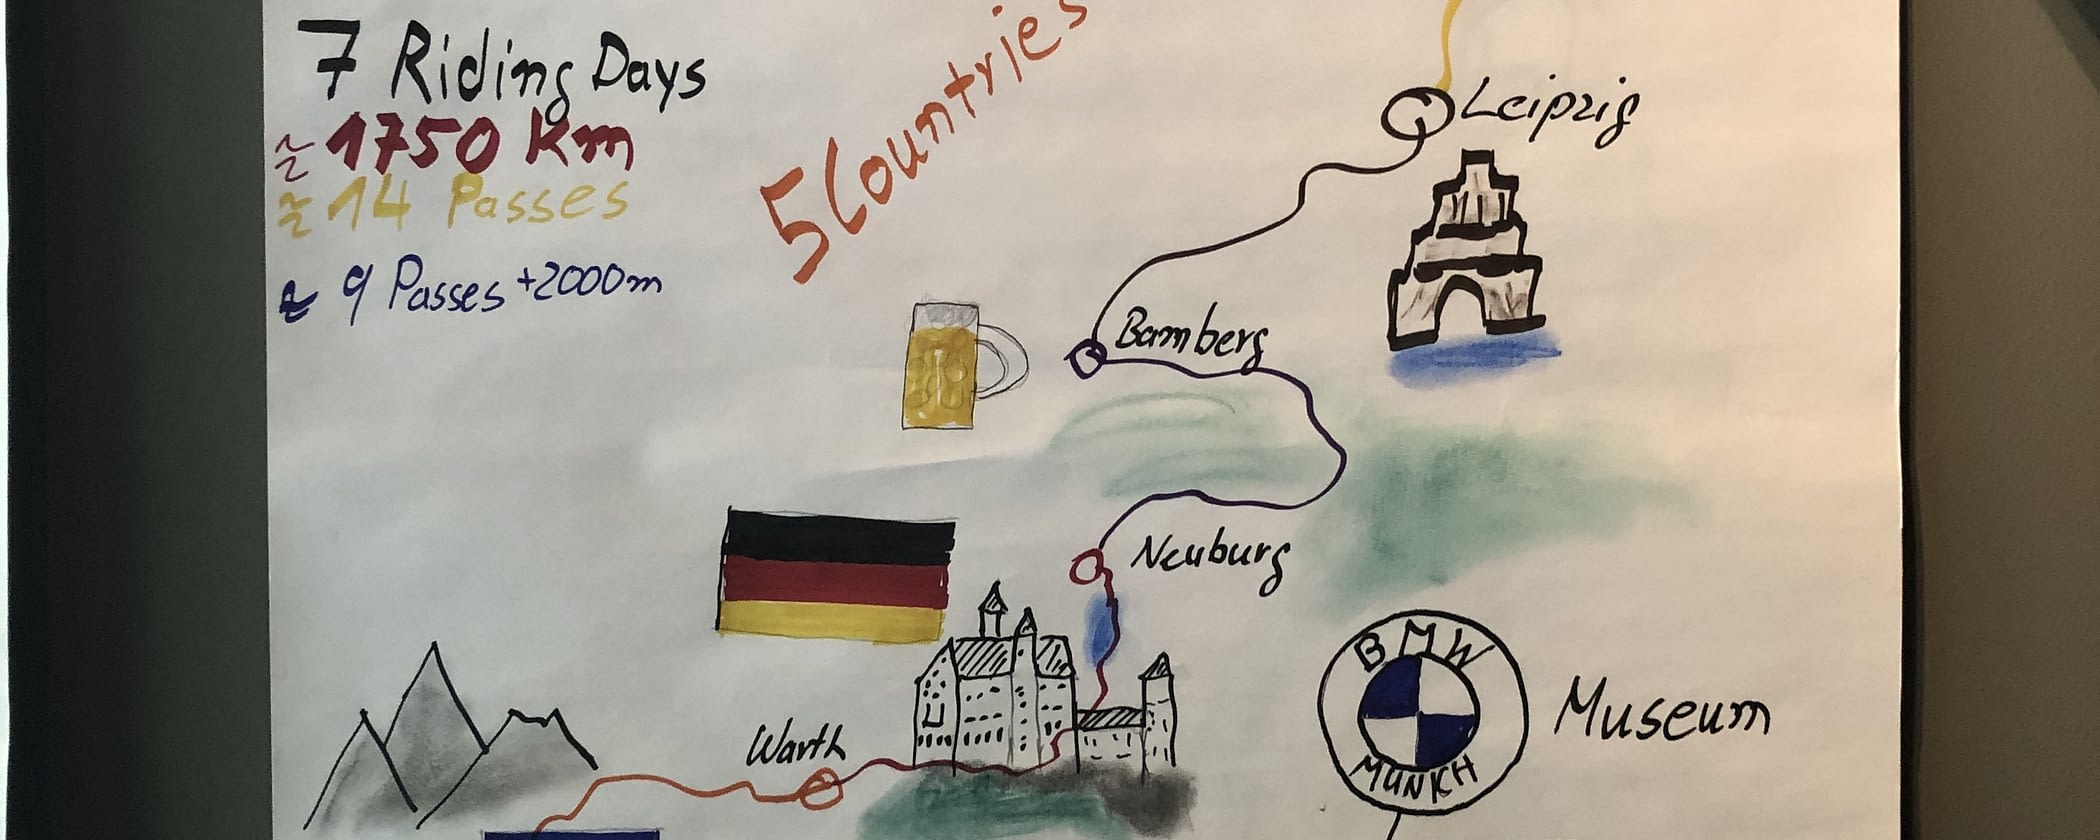 7 Riding Days
≈ 1750 Km
≈ 14 Passes
≈ 9 Passes +2000m
5 Countries
Leipzig
Bamberg
Neuburg
Warth
BMW
MUNICH
Museum